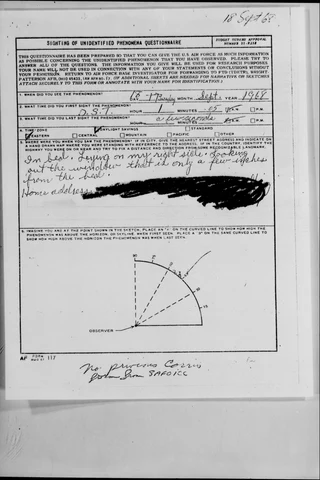 18 Sept 68
SIGHTING OF UNIDENTIFIED PHENOMENA QUESTIONNAIRE
BUDGET BUREAU APPROVAL
THIS QUESTIONNAIRE HAS BEEN PREPARED SO THAT YOU CAN GIVE THE U.S. AIR FORCE AS MUCH INFORMATION
AS POSSIBLE CONCERNING THE UNIDENTIFIED PHENOMENON THAT YOU HAVE OBSERVED. PLEASE TRY TO
ANSWER ALL OF THE QUESTIONS. THE INFORMATION YOU GIVE WILL BE USED FOR RESEARCH PURPOSES.
YOUR NAME WILL NOT BE USED IN CONNECTION WITH ANY OF YOUR STATEMENTS OR CONCLUSIONS WITHOUT
YOUR PERMISSION. RETURN TO AIR FORCE BASE INVESTIGATOR FOR FORWARDING TO FTD (TDETR), WRIGHT-
PATTERSON AFB, OHIO 45433. IF ADDITIONAL SHEETS ARE NEEDED FOR NARRATIVE OR SKETCHES
ATTACH SECURELY TO THIS FORM OR ANNOTATE WITH YOUR NAME FOR IDENTIFICATION
1. WHEN DID YOU SEE THE PHENOMENON? DAY MONTH Sept. YEAR 1968
2. WHAT TIME DID YOU FIRST SIGHT THE PHENOMENON?
D.S.T. HOUR 1 MINUTES 15 A.M. P.M.
3. WHAT TIME DID YOU LAST SIGHT THE PHENOMENON?
HOUR a few seconds MINUTES A.M. P.M.
4. TIME/ZONE DAYLIGHT SAVINGS STANDARD
EASTERN CENTRAL MOUNTAIN PACIFIC OTHER
5. WHERE WERE YOU WHEN YOU SAW THE PHENOMENON? IF IN CITY, GIVE THE NEAREST STREET ADDRESS AND INDICATE ON
A HAND DRAWN MAP WHERE YOU WERE STANDING WITH REFERENCE TO THE ADDRESS. IF IN THE COUNTRY, IDENTIFY THE
HIGHWAY YOU WERE ON OR NEAR AND TRY TO FIX A DISTANCE AND DIRECTION FROM SOME RECOGNIZABLE LANDMARK.
In bed. Laying on my right side. Looking
out the window that is only a few inches
from the bed.
Home address
6. IMAGINE YOU ARE AT THE POINT SHOWN IN THE SKETCH. PLACE AN "A" ON THE CURVED LINE TO SHOW HOW HIGH THE
PHENOMENON WAS ABOVE THE HORIZON, OR SKYLINE, WHEN FIRST SEEN. PLACE A "B" ON THE SAME CURVED LINE TO
SHOW HOW HIGH ABOVE THE HORIZON THE PHENOMENON WAS WHEN LAST SEEN.
OBSERVER
AF FORM 117
No previous
from SAFOICC